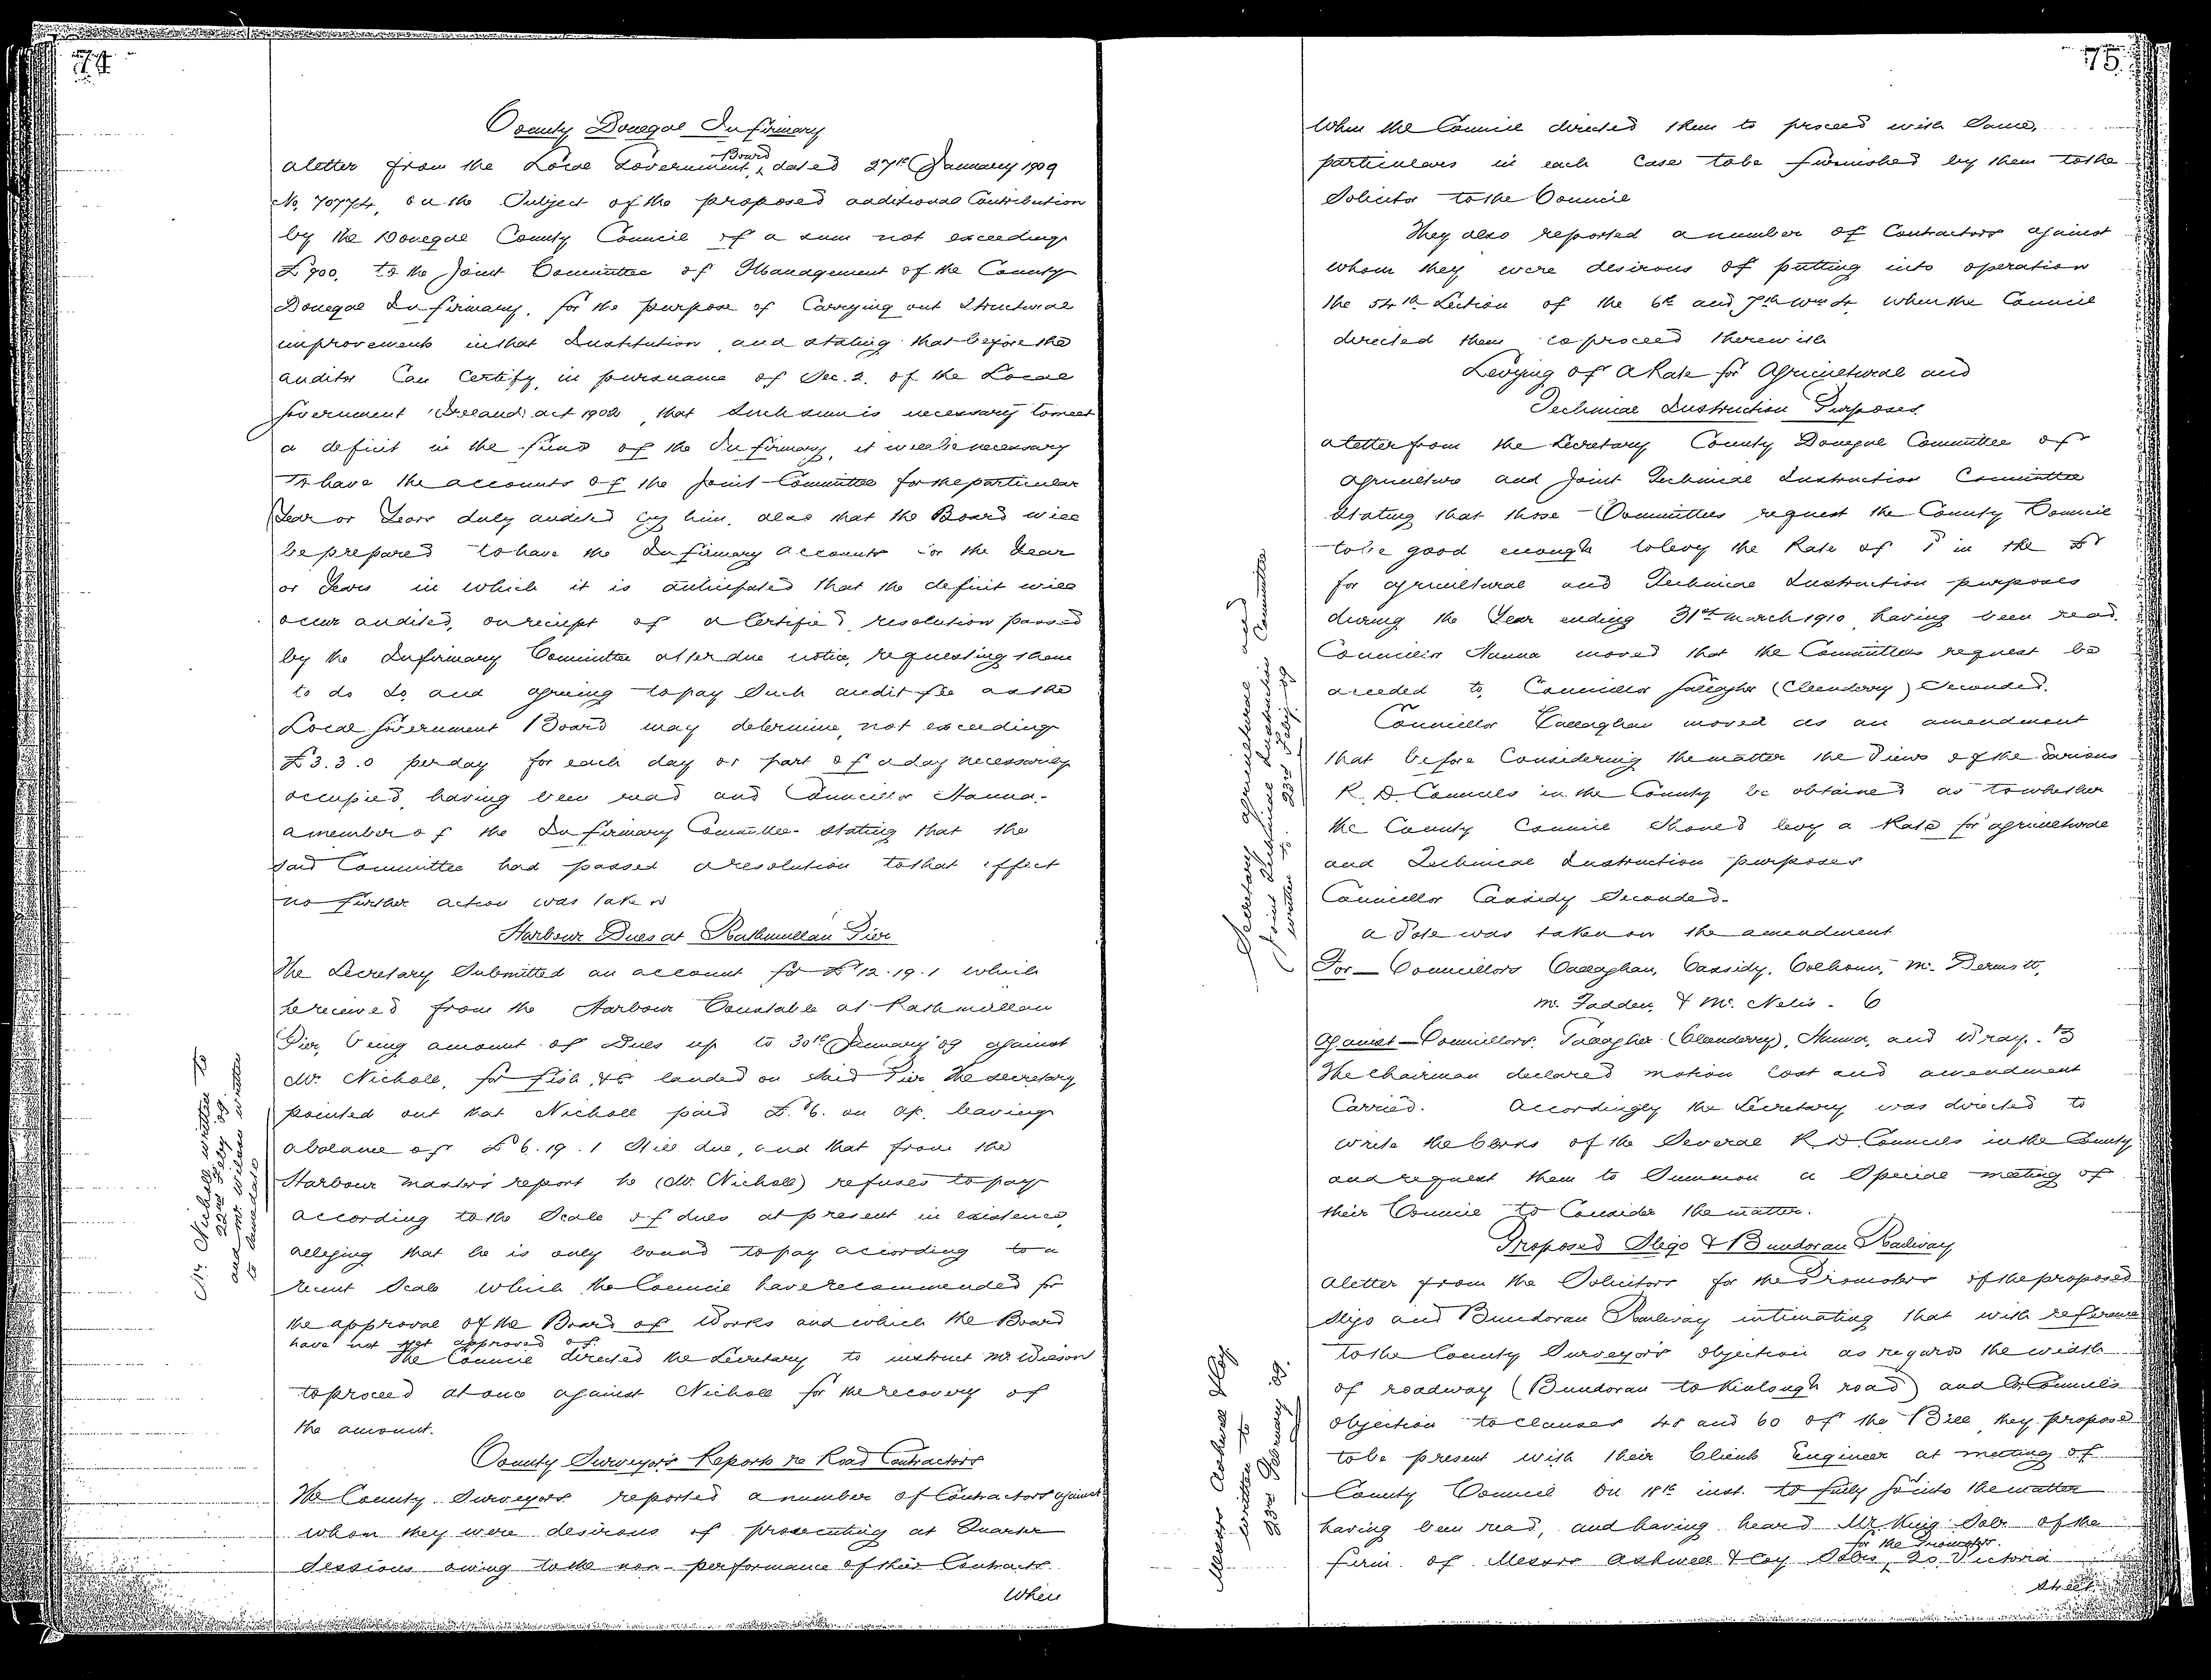 74
County Donegal Infirmary
a letter from the Local Government Board, dated 27th January 1909
No. 70774, on the Subject of the proposed additional Contribution
by the Donegal County Council of a sum not exceeding
£900, to the Joint Committee of Management of the County
Donegal Infirmary, for the purpose of Carrying out Structural
improvements in that Institution, and stating that before the
auditor Can Certify, in pursuance of Sec. 2. of the Local
Government (Ireland) act 1902, that such sum is necessary to meet
a deficit in the fund of the Infirmary, it will be necessary
To have the accounts of the Joint Committee for the particular
Year or Years duly audited by him, also that the Board will
be prepared to have the Infirmary accounts for the Year
or Years in which it is anticipated that the deficit will
occur audited, on receipt of a Certified resolution passed
by the Infirmary Committee after due notice, requesting them
to do so and agreeing to pay Such audit fee as the
Local Government Board may determine, not exceeding
£3.3.0 per day for each day or part of a day necessarily
occupied, having been read and Councillor Hanna-
a member of the Infirmary Committee- stating that the
said Committee had passed a resolution to that effect
no further action was taken
Harbour Dues at Rathmullan Pier
The Secretary Submitted an account for £12.19.1 which
he received from the Harbour Constable at Rathmullan
Pier, being amount of Dues up to 30th January 09 against
Mr. Nicholl, for fish, &c landed on said Pier. The secretary
pointed out that Nicholl paid £6. on a/c. leaving
a balance of £6.19.1 Still due, and that from the
Harbour master's report he (Mr. Nicholl) refuses to pay
according to the Scale of dues at present in existence,
alleging that he is only bound to pay according to a
recent Scale which the Council have recommended for
the approval of the Board of Works and which the Board
have not yet approved of.
The Council directed the Secretary to instruct Mr Wilson
to proceed at once against Nicholl for the recovery of
the amount.
Mr. Nicholl written to
22nd Feby 09.
and Mr. Wilson written
to same date
County Surveyors Reports re Road Contractors
The County Surveyors reported a number of Contractors against
whom they were desirous of prosecuting at Quarter
Sessions owing to the non-performance of their Contracts
When
75
When the Council directed them to proceed with Same,
particulars in each Case to be furnished by them to the
Solicitor to the Council
They also reported a number of Contractors against
whom they were desirous of putting into operation
the 54th Section of the 6th and 7th Wm 4, when the Council
directed them to proceed therewith
Levying of a Rate for Agricultural and
Technical Instruction Purposes.
a letter from the Secretary County Donegal Committee of
agriculture and Joint Technical Instruction Committee
Stating that those Committees request the County Council
to be good enough to levy the Rate of 1d in the £
for agricultural and Technical Instruction purposes
during the Year ending 31st march 1910, having been read,
Councillor Hanna moved that the Committees request be
acceded to, Councillor Gallagher (Cloanderry) Seconded.
Councillor Callaghan moved as an amendment
that before Considering the matter the Views of the various
R. D. Councils in the County be obtained as to whether
the County Council Should levy a Rate for agricultural
and Technical Instruction purposes
Councillor Cassidy Seconded-
a Vote was taken on the amendment
For - Councillors Callaghan, Cassidy, Colhoun, Mc. Dermott,
Mc. Fadden, & Mc. Nelis - 6
Against - Councillors. Gallagher (Cloanderry), Hanna, and Wray. - 3
The Chairman declared motion lost and amendment
Carried. Accordingly the Secretary was directed to
write the Clerks of the Several R. D. Councils in the County
and request them to Summon a Special meeting of
their Council to Consider the matter.
Secretary agricultural and
Joint Technical Instruction Committee
written to. 23rd Feby. 09
Proposed Sligo & Bundoran Railway
a letter from the Solicitors for the Promoters of the proposed
Sligo and Bundoran Railway intimating that with reference
to the County Surveyor's objection as regards the width
of roadway (Bundoran to Kinlough road) and Co. Council's
objection to Clauses 48 and 60 of the Bill they propose
to be present with their Clients Engineer at meeting of
County Council on 18th inst. to fully go into the matter
having been read, and having heard Mr. King Solr. of the
firm of Messrs Ashwell & Coy Solrs for the Promoters, 20, Victoria
Street
Messrs Ashwell & Coy.
written to
23rd February 09.